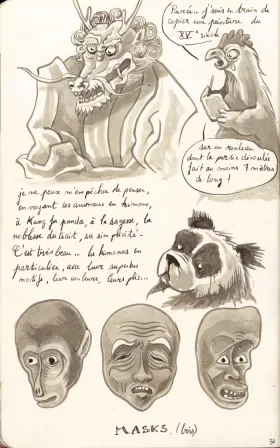 Purée... j'suis en train de
copier une peinture du
XV° siècle
sur un rouleau
dont la partie déroulée
fait au moins 7 mètres
de long !
je ne peux m'empêcher de penser,
en voyant les animaux en kimono,
à Kung fu panda, à la sagesse, la
noblesse du trait, sa simplicité -
C'est très beau... les kimonos en
particulier, avec leurs superbes
motifs, leurs couleurs, leurs plis...
MASKS. (bois)